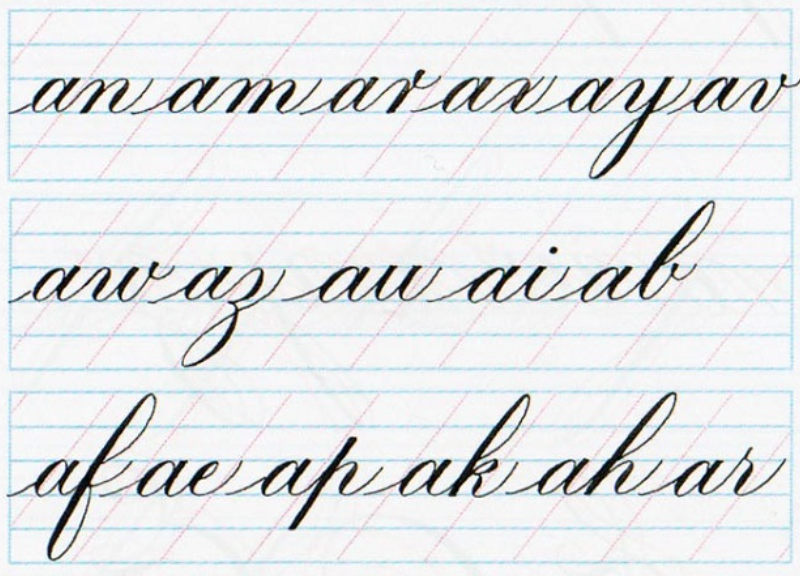 an am ar ax ay av
aw az au ai ab
af ae ap ak ah ar